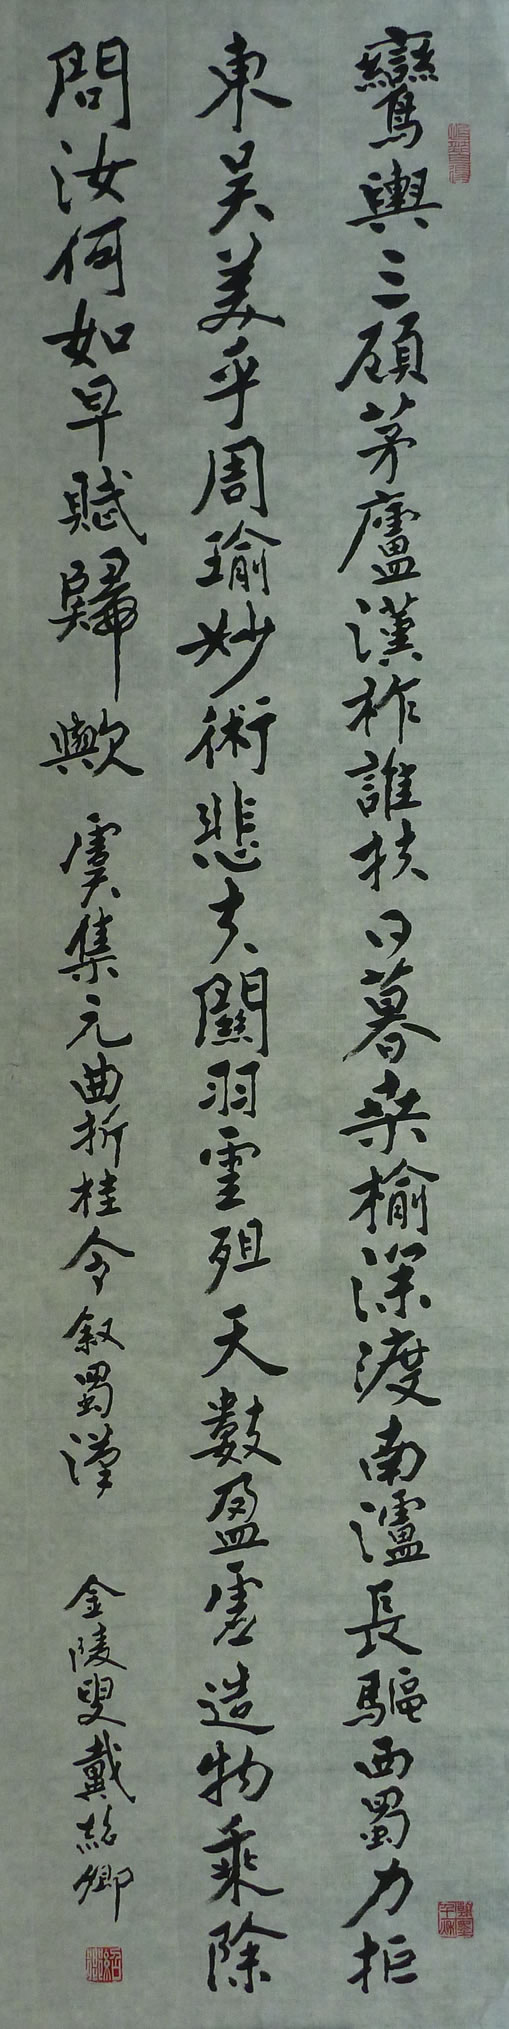 鸞輿三顧茅廬漢祚誰扶日暮桑榆深渡南瀘長驅西蜀力拒
東吳美乎周瑜妙術悲夫關羽雲殂天數盈虛造物乘除
問汝何如早賦歸歟
虞集元曲折桂令叙蜀漢
金陵叟戴紹卿